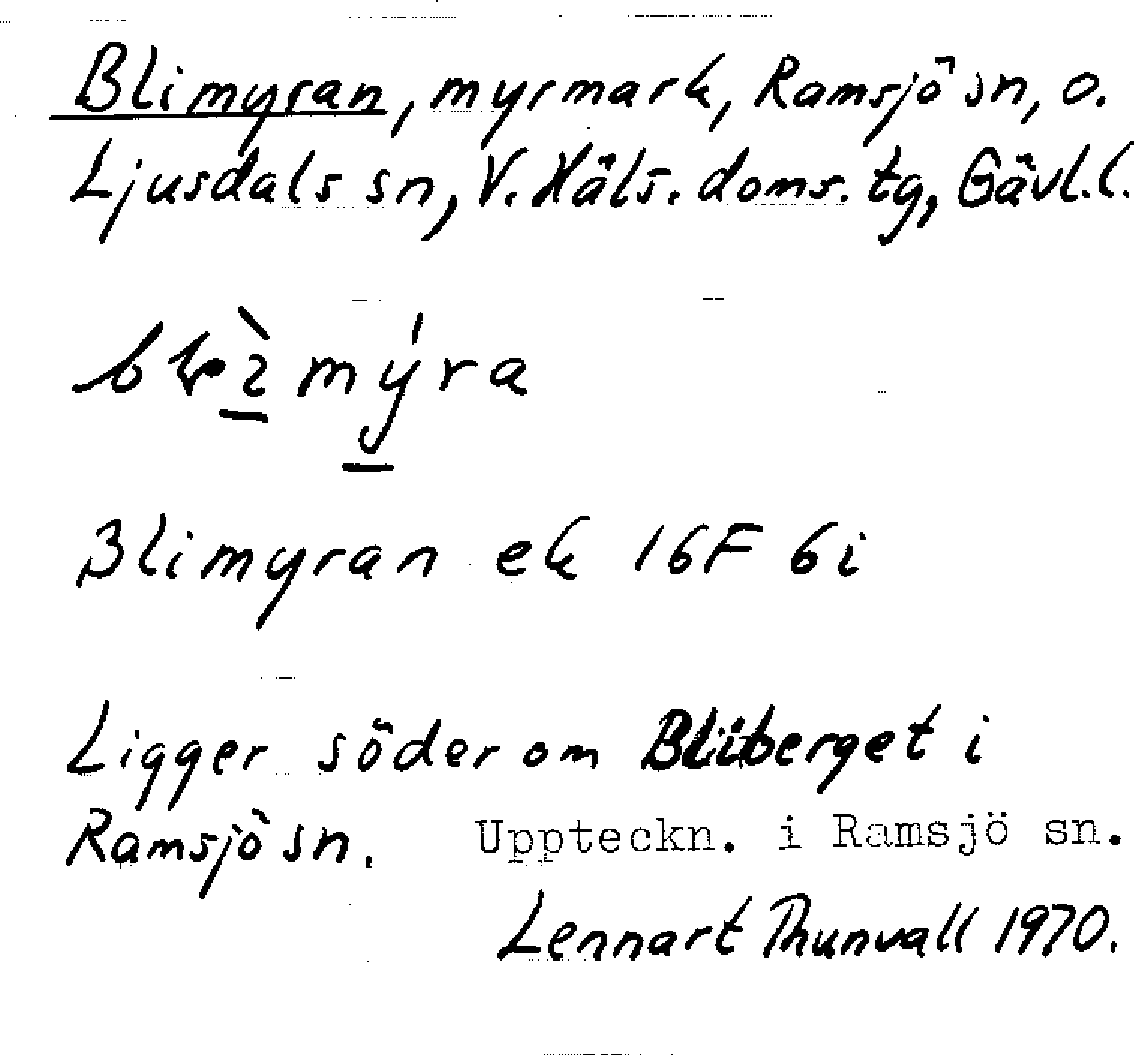 Blimyran, myrmark, Ramsjö sn, o.
Ljusdals sn, V. Häls. doms. tg, Gävl.l.
Blimyran ek 16F 6i
Ligger söder om Bliberget i
Ramsjö sn. Uppteckn. i Ramsjö sn.
Lennart Thunvall 1970.